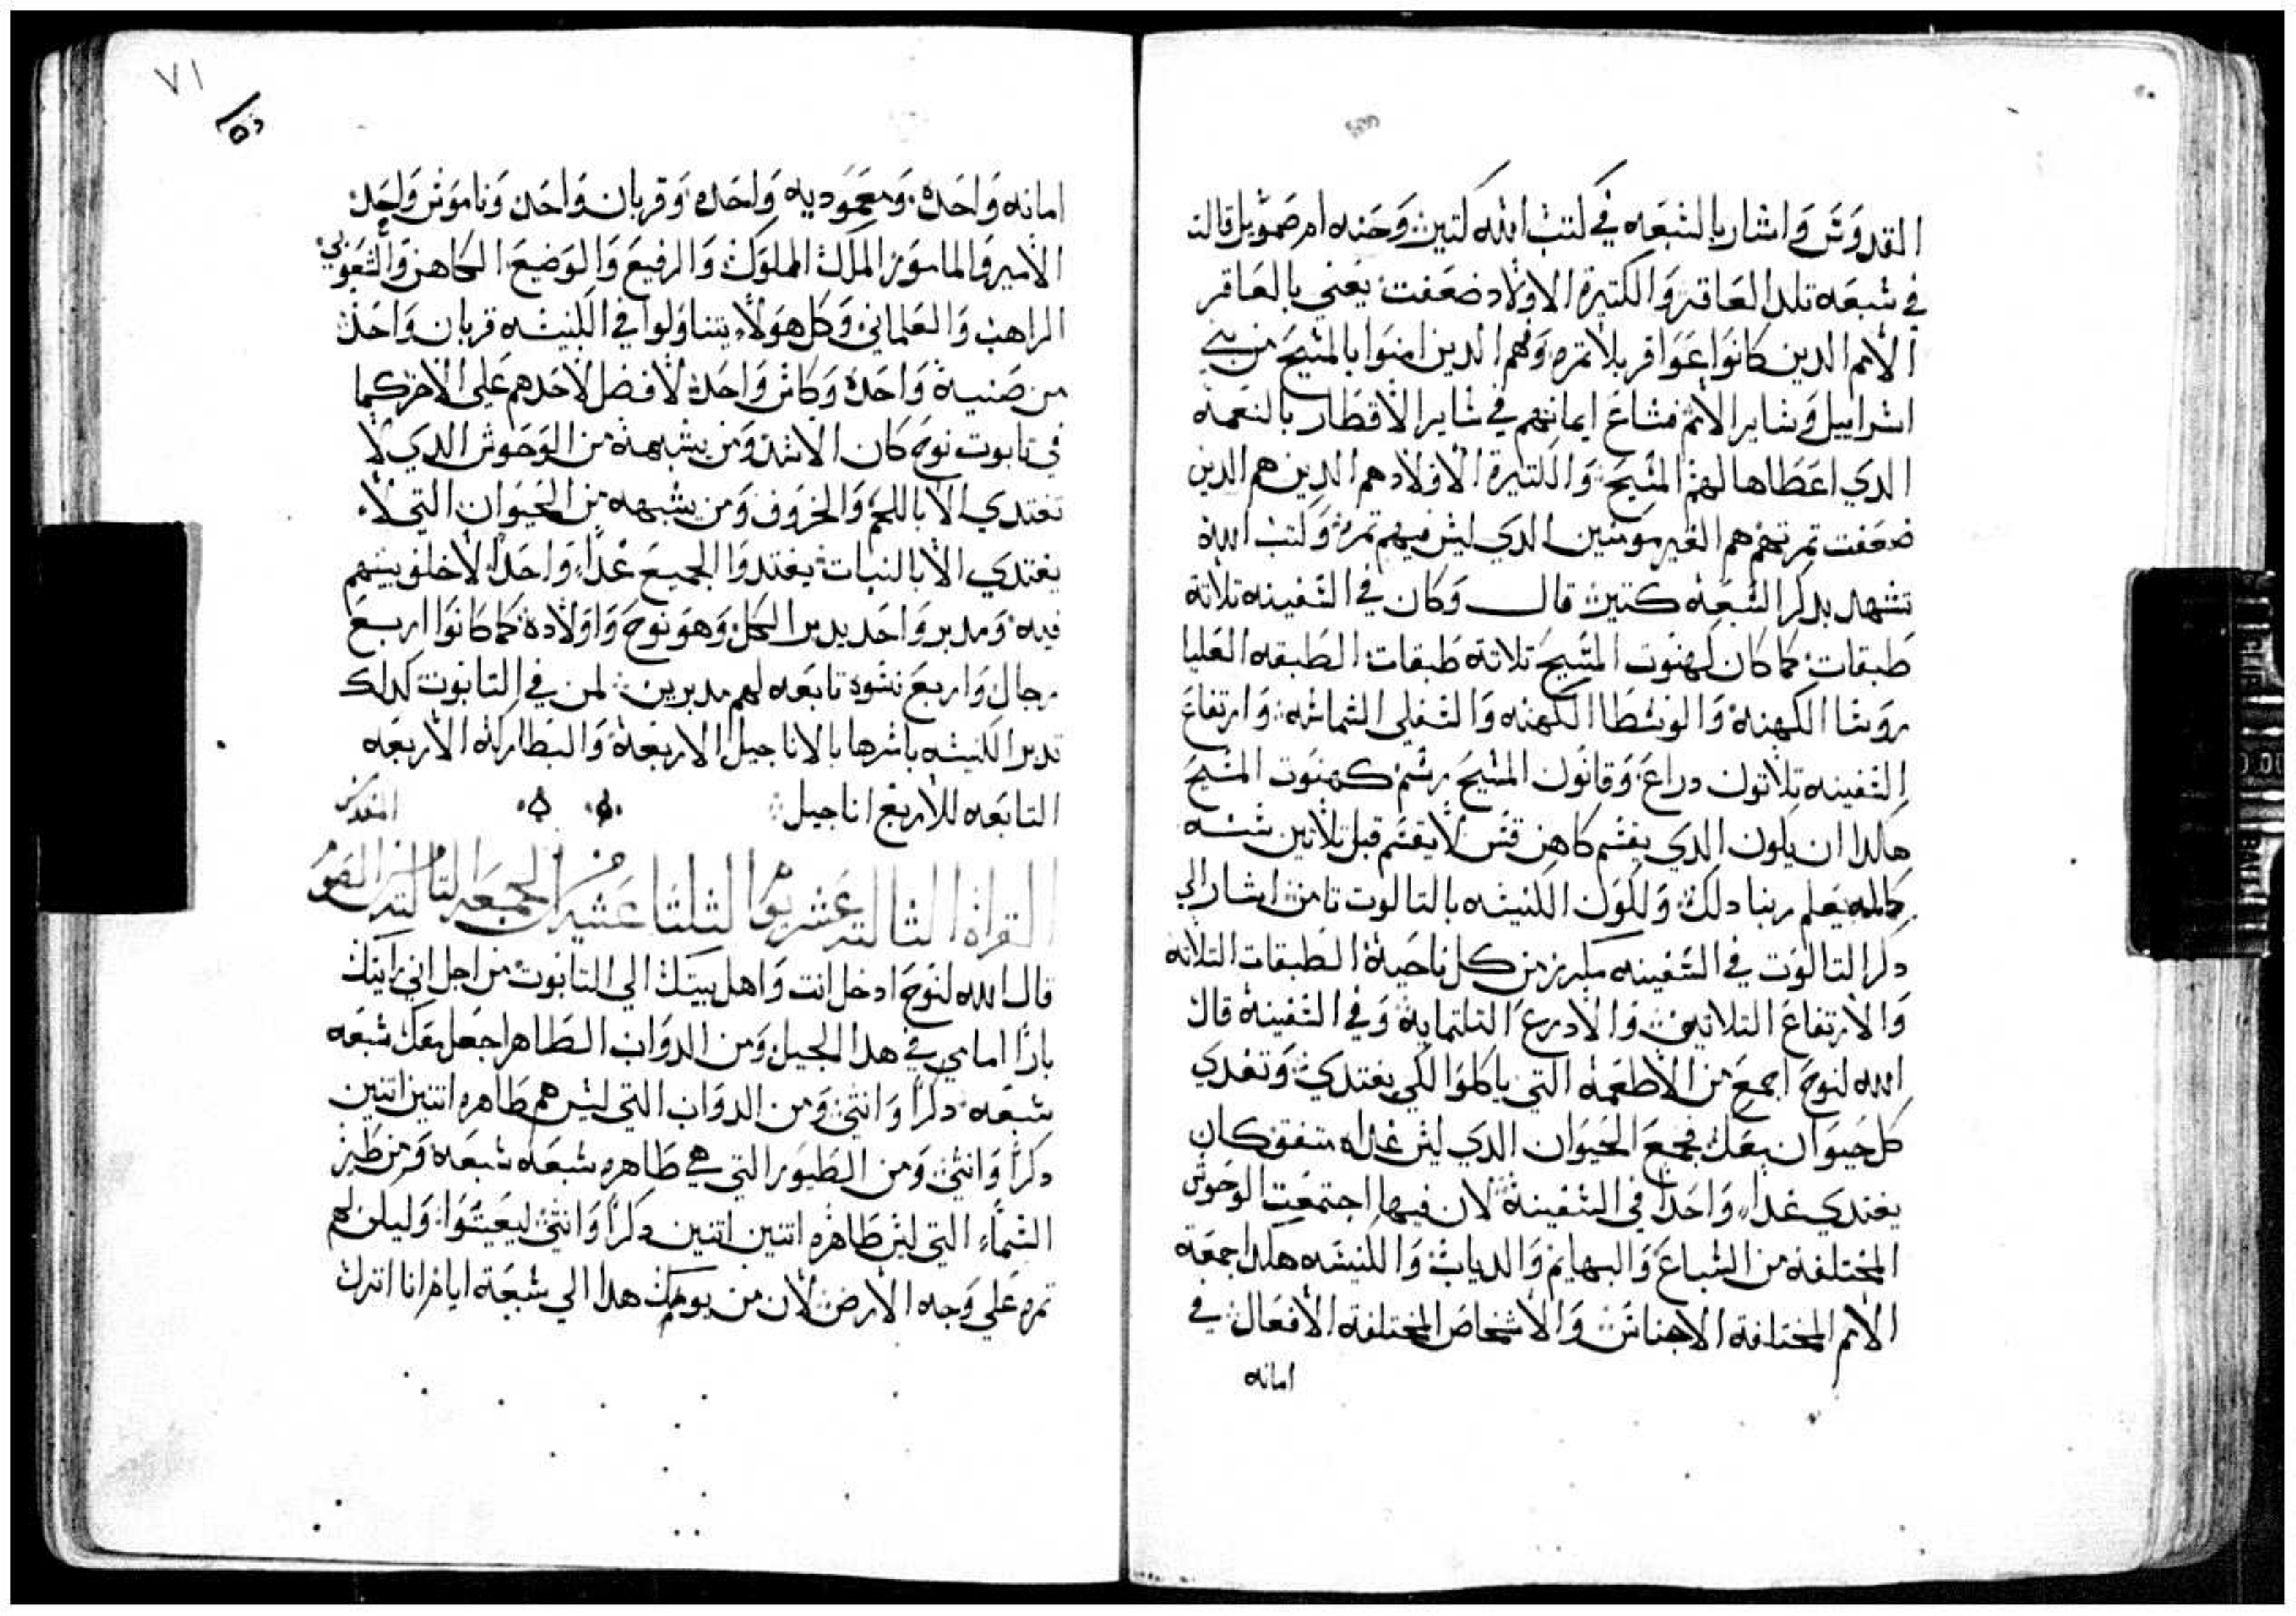 القدوس واشار بالشبعه في كتب الله كتير وحنه ام صموييل قالت
في شبعه تلد العاقر والكتيرة الاولاد ضعفت يعني بالعاقر
الامم الدين كانوا عواقر بلا تمره وهم الدين امنوا بالمشيح من بني
اشراييل وشاير الامم فشاع ايمانهم في شاير الاقطار بالنعمه
الدي اعطاها لهم المشيح والكتيرة الاولاد هم الدين هم الدين
ضعفت تمرتهم هم الغير مومنين الدي ليش فيهم تمره وكتب الله
تشهد بدكر الشبعه كتير قال وكان في الشفينه تلاتة
طبقات كما كان لكهنوت المشيح تلاتة طبقات الطبقه العليا
روشا الكهنة والوشطا الكهنه والشفلي الشماشه وارتفاع
الشفينه تلاتون دراع وقانون المشيح برشم كهنوت المشيح
هاكدا ان يكون الدي يقشم كاهن قش لا يقشم قبل تلاتين شنه
كامله يعلم ربنا دلك ولكون الكنيشه بالتالوت تامن اشار الي
دكر التالوت في الشفينه مكرز من كل ناحية الطبقات التلاته
والارتفاع التلاتين والادرع التلتماية وفي الشفينة قال
الله لنوح اجمع من الاطعمه التي ياكلوا لكي يغتدي وتغدي
كل حيوان معك فجمع الحيوان الدي ليش غداه متفق كان
يغتدي غداء واحدا في الشفينة لان فيها اجتمعت الوحوش
المختلفه من الشباع والبهايم والدباب والكنيشه هكدا جمعه
الامم المختلفة الاجناش والاشخاص المختلفة الافعال في
امانه
٧١
امانه واحده ومعموديه واحده وقربان واحد وناموش واحد
الامير والمامور الملك المملوك والرفيع والوضيع الكاهن والشعوبي
الراهب والعلماني وكل هولاء يتناولوا في الكنيشه قربان واحد
من صنية واحدة وكاش واحدة لا فضل لاحدهم علي الاخر كما
في تابوت نوح كان الاشد ومن يشبهه من الوحوش الدي لا
تغتدي الا باللحم والخروف ومن يشبهه من الحيوان التي لا
يغتدي الا بالنبات يغتدوا الجميع غداء واحدا لا خلف بينهم
فيه ومدبر واحد يدبر الكل وهو نوح واولاده كما كانوا اربع
رجال واربع نشوه تابعه لهم مدبرين لمن في التابوت كدلك
تدبر الكنيشه باشرها بالاناجيل الاربعة والبطاركة الاربعه
التابعه للاربع اناجيل
المقدس
القراة التالته عشر يوم التلتا عشية الجمعه التالته من الصوم
قال الله لنوح ادخل انت واهل بيتك الي التابوت من اجل اني رايتك
بارا امامي في هدا الجيل ومن الدواب الطاهر اجعل معك شبعه
شبعه دكرا وانثي ومن الدواب التي ليش هم طاهره اتنين اتنين
دكرا وانثي ومن الطيور التي هي طاهره شبعه شبعه ومن طير
الشماء التي ليش طاهره اتنين اتنين دكرا وانثي ليعيشوا وليكن لهم
تمره علي وجه الارض لان من يومك هدا الي شبعة ايام انا انزل